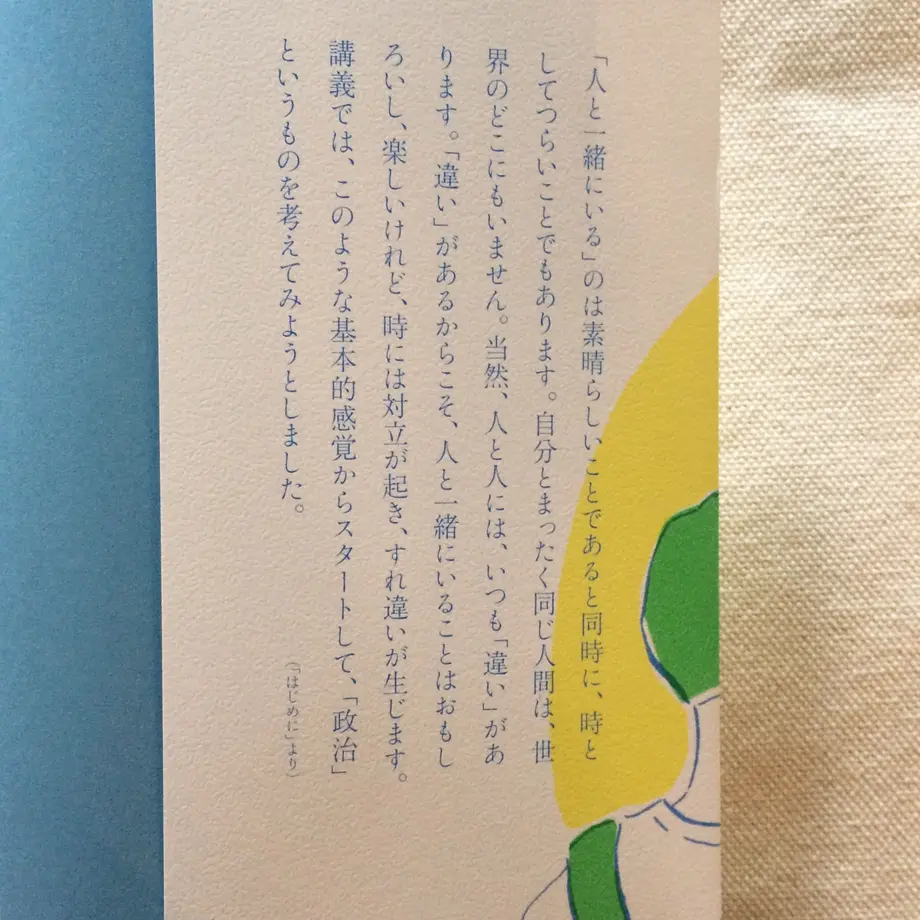 「人と一緒にいる」のは素晴らしいことであると同時に、時と
してつらいことでもあります。自分とまったく同じ人間は、世
界のどこにもいません。当然、人と人には、いつも「違い」があ
ります。「違い」があるからこそ、人と一緒にいることはおもし
ろいし、楽しいけれど、時には対立が起き、すれ違いが生じます。
講義では、このような基本的感覚からスタートして、「政治」
というものを考えてみようとしました。
(「はじめに」より)